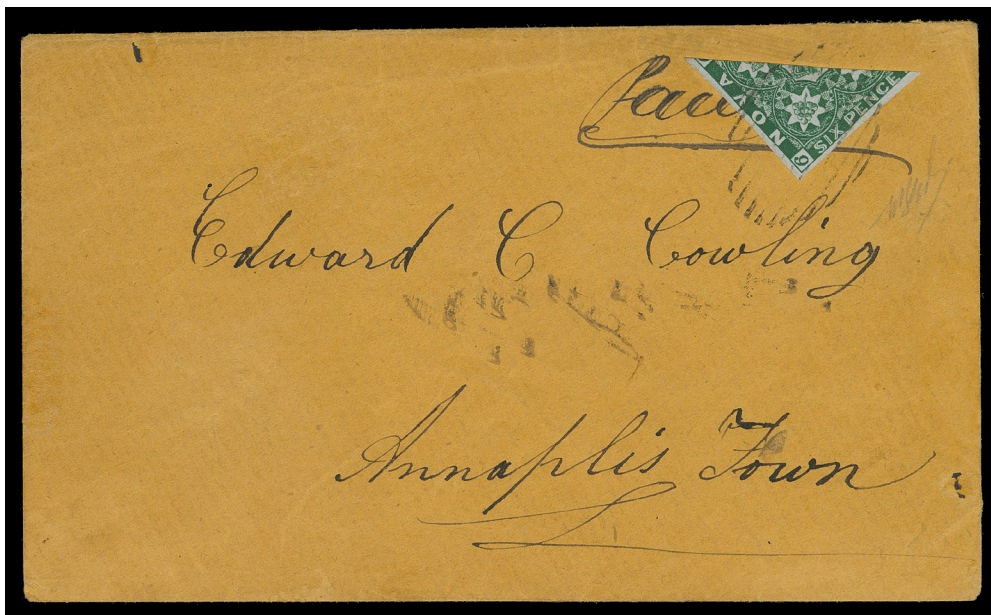 Paid
NOVA
6
SIX PENCE
Edward C Cowling
Annaplis Town